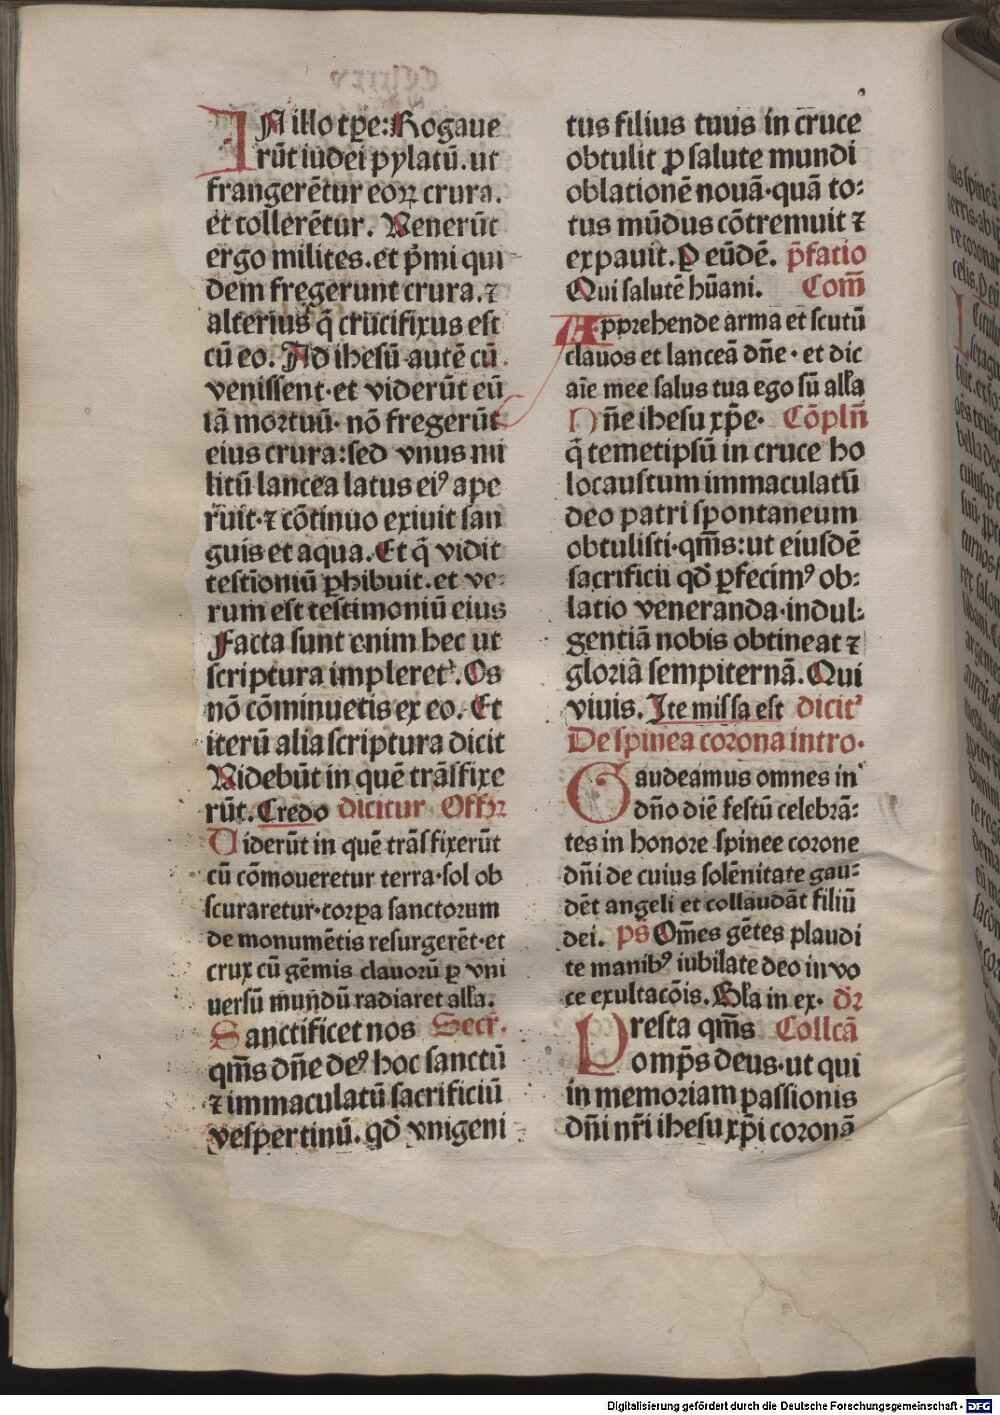 IN illo tp̄e: Rogaue
rūt iudei pylatū. ut
frangerētur eoꝝ crura.
et tollerētur. Venerūt
ergo milites. et p̄mi qui
dem fregerunt crura. ⁊
alterius q̄ crucifixus est
cū eo. Ad ihesū autē cū
venissent· et viderūt eū
iā mortuū· nō fregerūt
eius crura: sed vnus mi
litū lancea latus ei⁹ ape
ruit· ⁊ cōtinuo exiuit san
guis et aqua. Et q̄ vidit
testioniū ꝑhibuit. et ve-
rum est testimoniū eius
Facta sunt enim hec ut
scriptura impleret᷑. Os
nō cōminuetis ex eo. Et
iterū alia scriptura dicit
Videbūt in quē trāsfixe
rūt. Credo dicitur Offꝛ
Viderūt in quē trāsfixerūt
cū cōmoueretur terra· sol ob
scuraretur· corꝑa sanctorum
de monumētis resurgerēt· et
crux cū gēmis clauorū ꝑ vni
uersū mundū radiaret alla.
Sanctificet nos Secr.
qm̄s dn̄e de⁹ hoc sanctū
⁊ immaculatū sacrificiū
vespertinū. qd̄ vnigeni
tus filius tuus in cruce
obtulit ꝓ salute mundi
oblationē nouā· quā to-
tus mūdus cōtremuit ⁊
expauit. P eūdē. p̄fatio
Qui salutē hūani. Com̄
Apprehende arma et scutū
clauos et lanceā dn̄e· et dic
aīe mee salus tua ego sū alla
Dn̄e ihesu xp̄e· Cōpln̄
q̄ temetipsū in cruce ho
locaustum immaculatū
deo patri spontaneum
obtulisti· qm̄s: ut eiusdē
sacrificii qd̄ ꝑfecim⁹ ob-
latio veneranda· indul-
gentiā nobis obtineat ⁊
gloriā sempiternā. Qui
viuis. Ite missa est dicit᷑
De spinea corona intro·
Gaudeamus omnes in
dn̄o diē festū celebrā-
tes in honore spinee corone
dn̄i de cuius solēnitate gau-
dēt angeli et collaudāt filiū
dei. ps̄ Om̄es gētes plaudi
te manib⁹ iubilate deo in vo
ce exultacōis. Gl̄a in ex· dꝛ
Presta qm̄s Collcā
omp̄s deus· ut qui
in memoriam passionis
dn̄i nr̄i ihesu xp̄i coronā
Digitalisierung gefördert durch die Deutsche Forschungsgemeinschaft - DFG